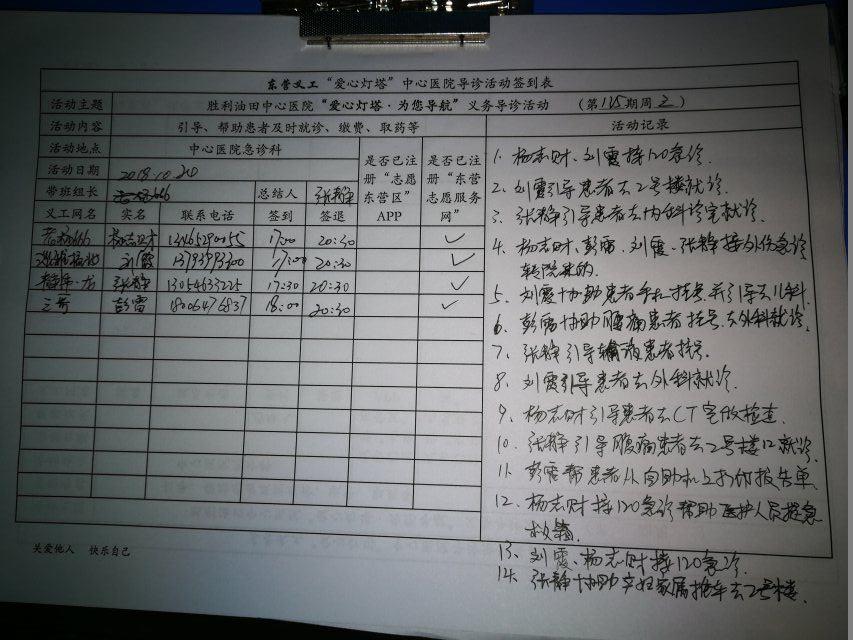 东营义工“爱心灯塔”中心医院导诊活动签到表
活动主题 胜利油田中心医院“爱心灯塔·为您导航”义务导诊活动 （第115期周三）
活动内容 引导、帮助患者及时就诊、缴费、取药等 活动记录
活动地点 中心医院急诊科 是否已注册“志愿东营区”APP 是否已注册“东营志愿服务网”
活动日期 2018.10.20
带班组长 666 总结人 张静
义工网名 实名 联系电话 签到 签退
杨志财 13465290055 17:00 20:30 ✓
刘霞 13793793300 17:00 20:30 ✓
张静 13054633225 17:30 20:30 ✓
彭雷 18006476837 18:00 20:30 ✓
1. 杨志财、刘霞接120急诊.
2. 刘霞引导患者去2号楼就诊.
3. 张静引导患者去内科诊室就诊.
4. 杨志财、彭雷、刘霞、张静接外伤急诊
转院来的.
5. 刘霞协助患者手机挂号并引导去儿科.
6. 彭雷协助腹痛患者挂号.去外科就诊.
7. 张静引导输液患者挂号.
8. 刘霞引导患者去外科就诊.
9. 杨志财引导患者去CT室做检查.
10. 张静引导腹痛患者去2号楼12就诊.
11. 彭雷帮患者从自助机上打印报告单.
12. 杨志财接120急诊帮助医护人员提急
救箱.
13. 刘霞、杨志财接120急诊.
14. 张静协助产妇家属推车去2号楼.
关爱他人 快乐自己